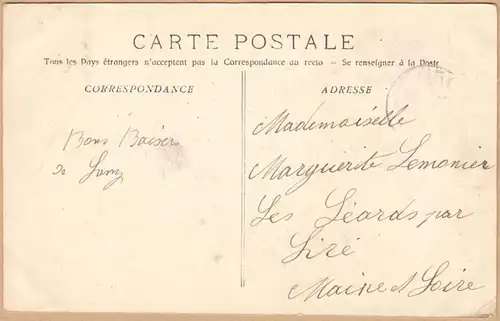 CARTE POSTALE
Tous les Pays étrangers n'acceptent pas la Correspondance au recto — Se renseigner à la Poste
CORRESPONDANCE
Bons Baisers
de
ADRESSE
Mademoiselle
Marguerite Lemonier
Les Léards par
Liré
Maine et Loire